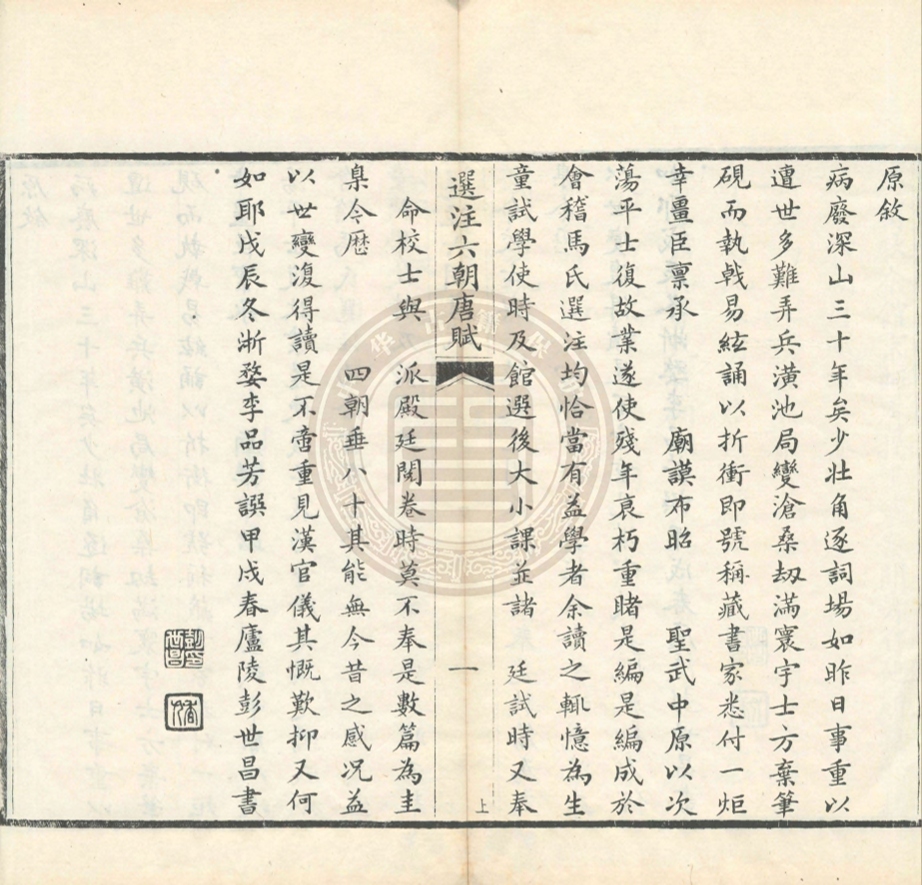 原敘
病廢深山三十年矣少壯角逐詞場如昨日事重以
遭世多難弄兵潢池局變滄桑劫滿寰宇士方棄筆
硯而執戟易絃誦以折衝即號稱藏書家悉付一炬
幸疆臣禀承　廟謨布昭　聖武中原以次
蕩平士復故業遂使殘年衰朽重睹是編是編成於
會稽馬氏選注均恰當有益學者余讀之輒憶為生
童試學使時及館選後大小課並諸　廷試時又奉
選注六朝唐賦
一
上
命校士與　派殿廷閱卷時莫不奉是數篇為圭
臬今歷　四朝垂八十其能無今昔之感况益
以世變復得讀是不啻重見漢官儀其慨歎抑又何
如耶戊辰冬浙婺李品芳譔甲戌春廬陵彭世昌書